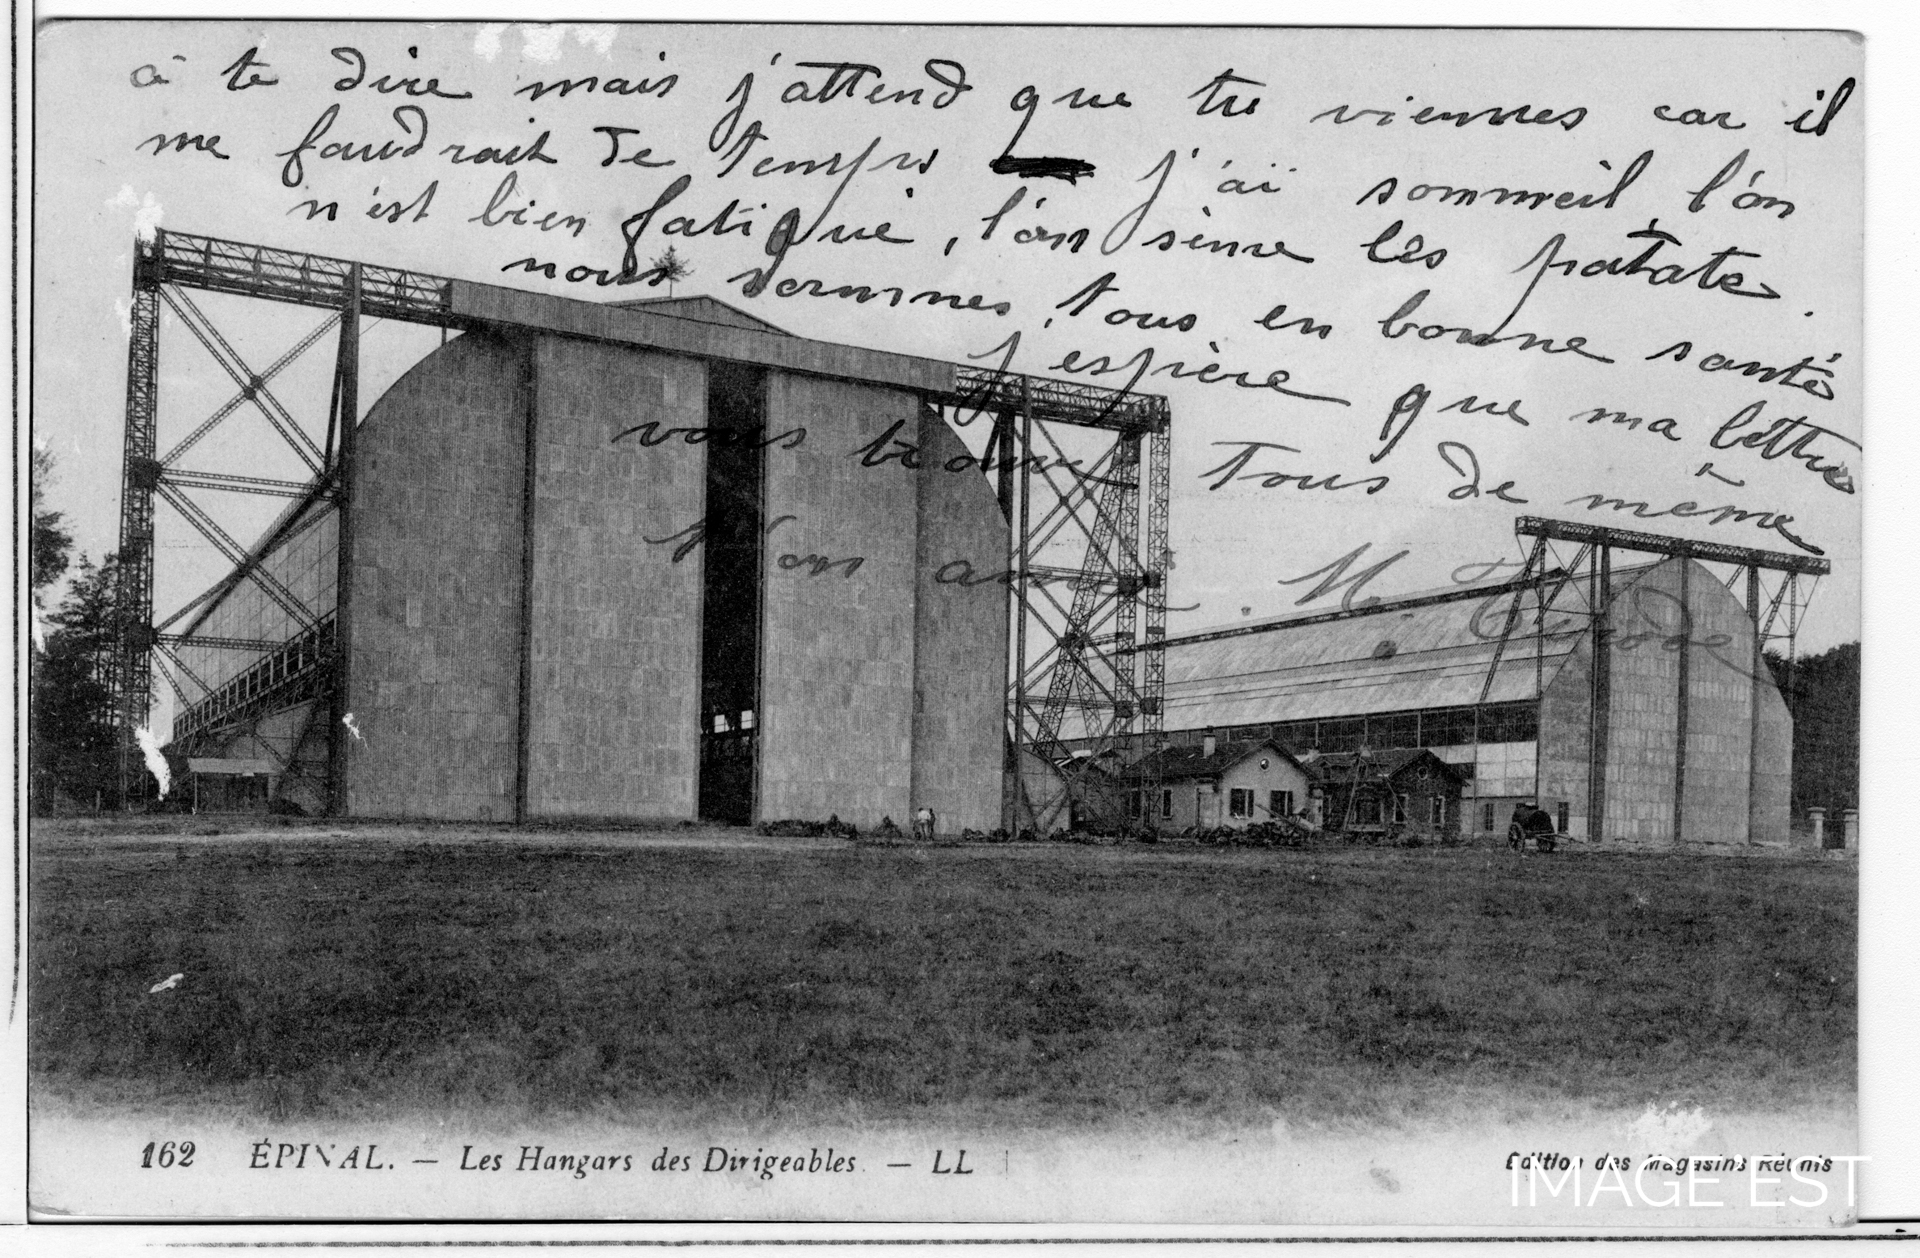 à te dire mais j'attend que tu viennes car il
me faudrait de temps j'ai sommeil l'on
n'est bien fatigué, l'on sème lès patate
nous sommes tous en bonne santé
j'espère que ma lettre
vous trouve tous de même
Ton amie. M.
162 ÉPINAL. — Les Hangars des Dirigeables. — LL
Edition des Magasins Réunis
IMAGE'EST